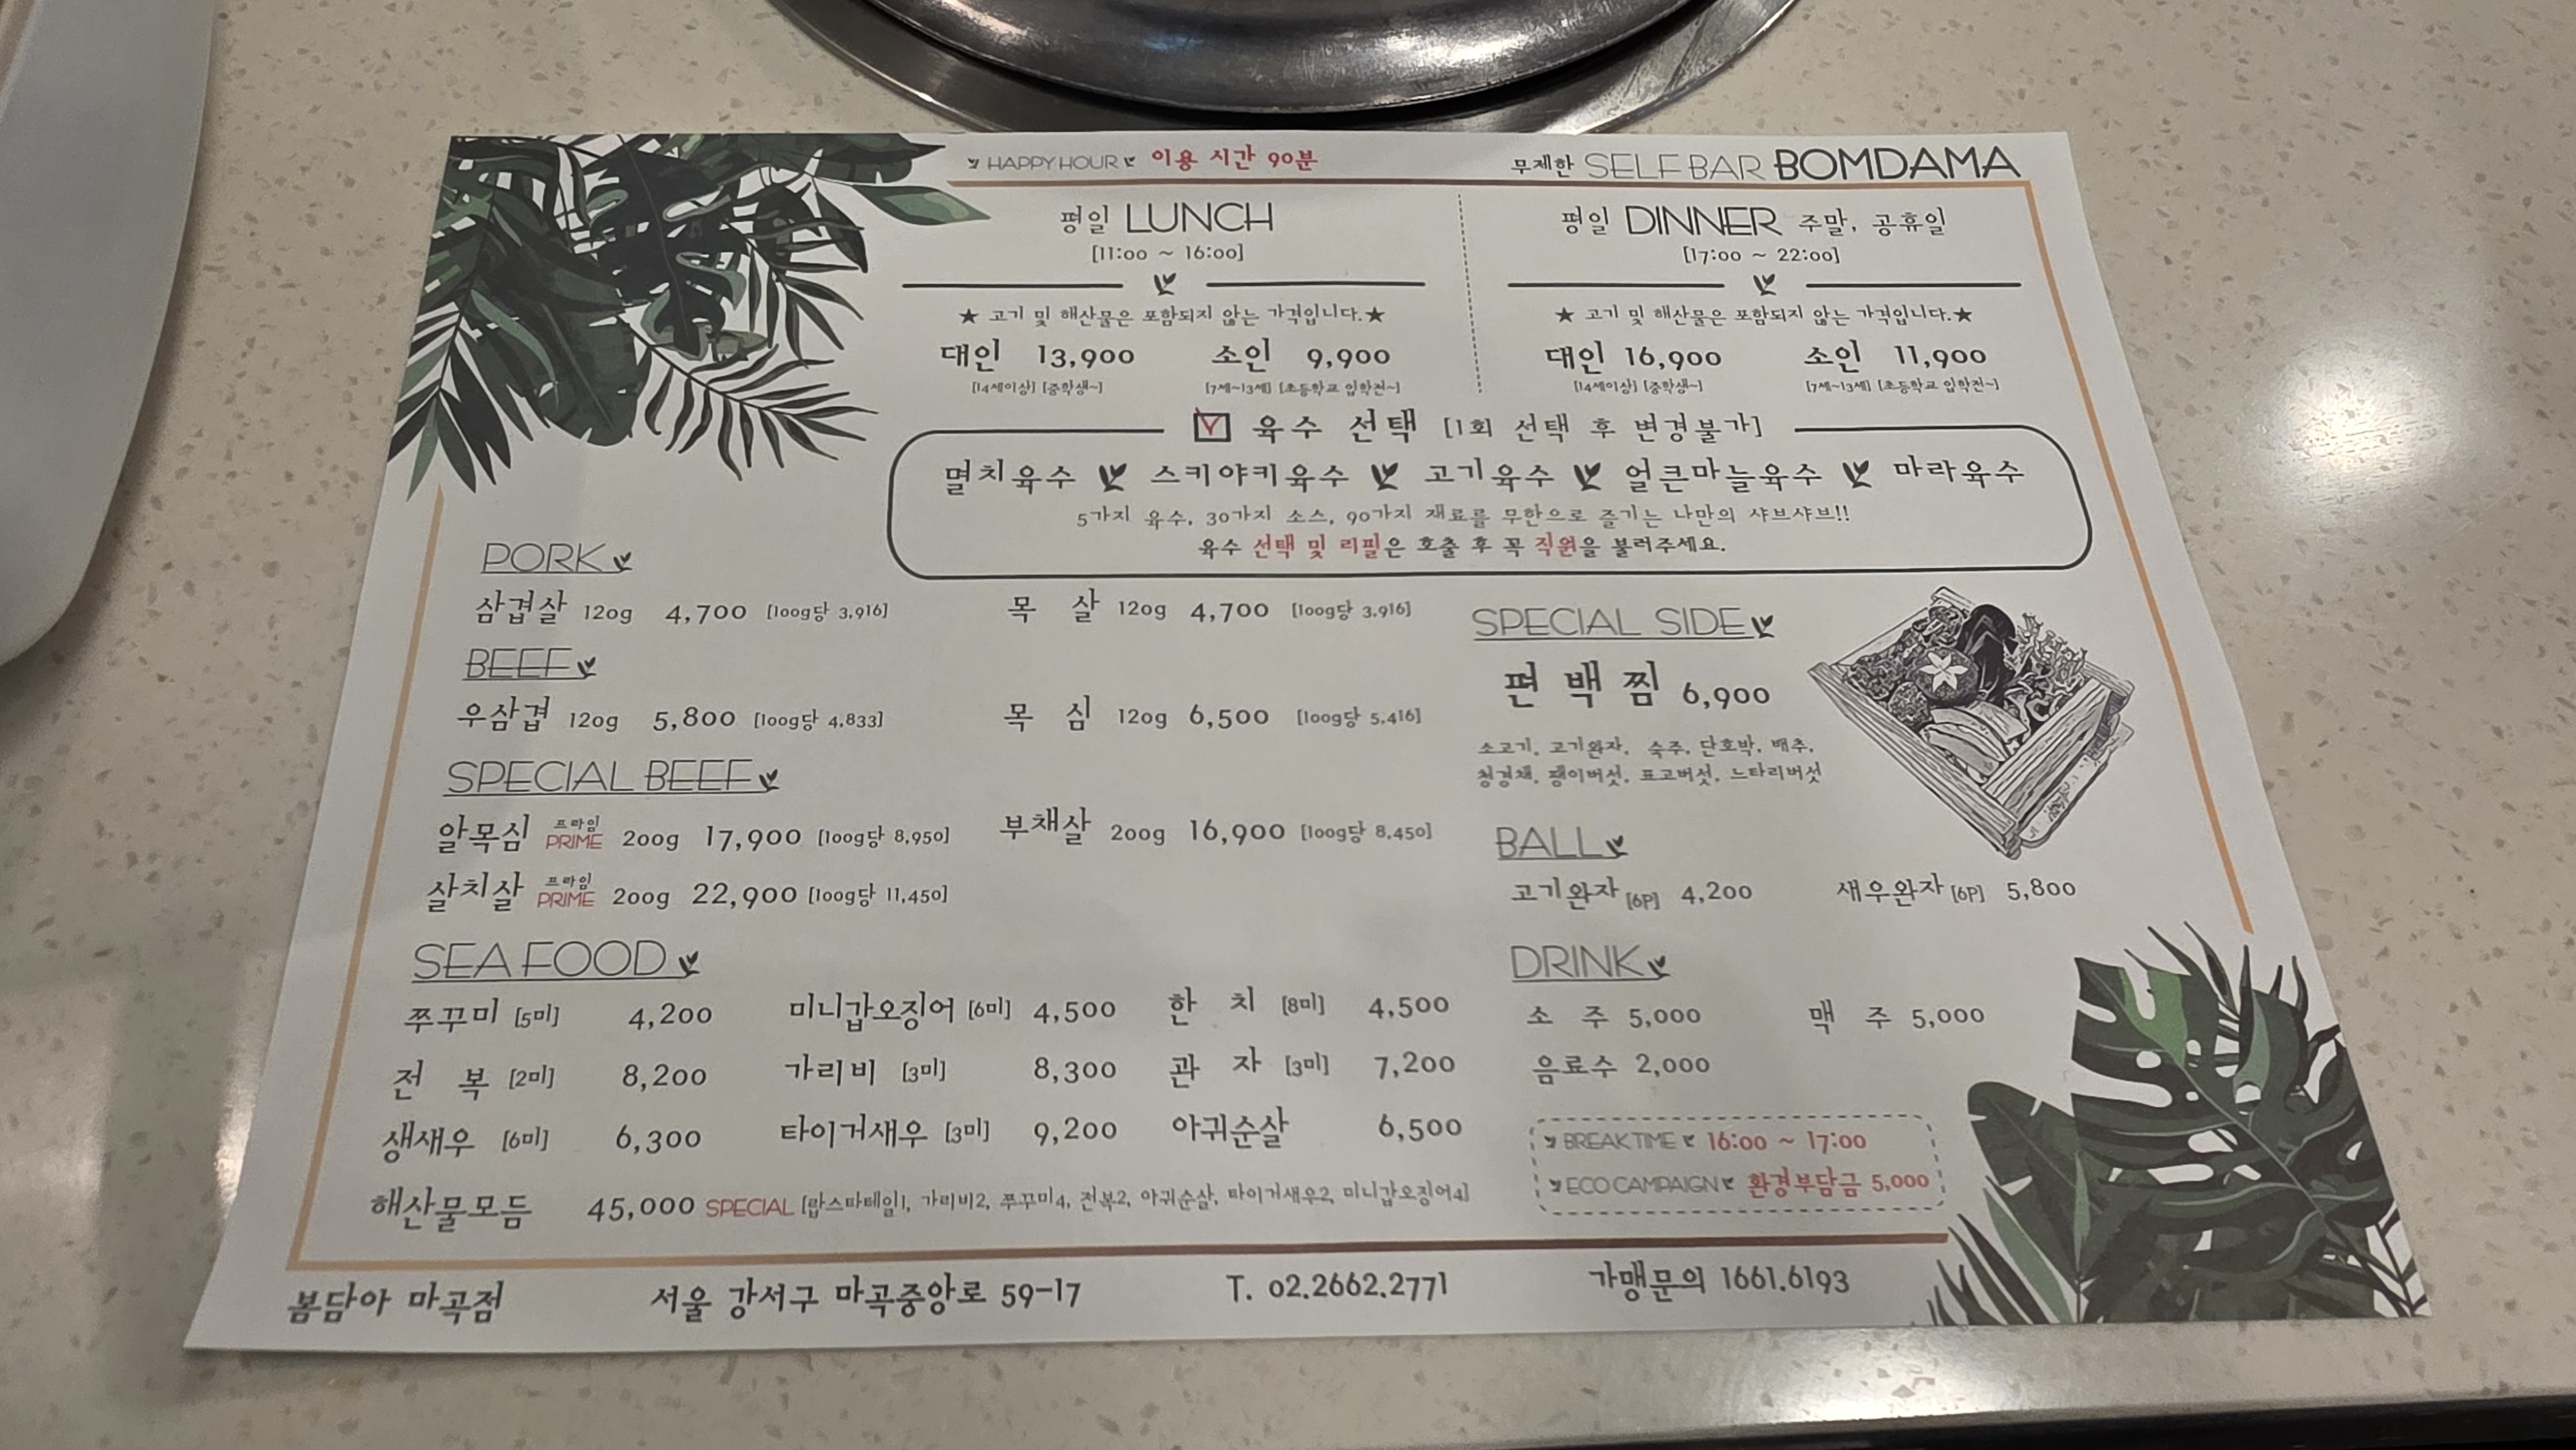 HAPPY HOUR 이용 시간 90분
무제한 SELF BAR BOMDAMA
평일 LUNCH
[11:00 ~ 16:00]
★ 고기 및 해산물은 포함되지 않는 가격입니다.★
대인 13,900 소인 9,900
[14세이상] [중학생~] [7세~13세] [초등학교 입학전~]
평일 DINNER 주말, 공휴일
[17:00 ~ 22:00]
★ 고기 및 해산물은 포함되지 않는 가격입니다.★
대인 16,900 소인 11,900
[14세이상] [중학생~] [7세~13세] [초등학교 입학전~]
육수 선택 [1회 선택 후 변경불가]
멸치육수 스키야키육수 고기육수 얼큰마늘육수 마라육수
5가지 육수, 30가지 소스, 90가지 재료를 무한으로 즐기는 나만의 샤브샤브!!
육수 선택 및 리필은 호출 후 꼭 직원을 불러주세요.
PORK
삼겹살 120g 4,700 [100g당 3,916] 목 살 120g 4,700 [100g당 3,916]
BEEF
우삼겹 120g 5,800 [100g당 4,833] 목 심 120g 6,500 [100g당 5,416]
SPECIAL BEEF
알목심 프라임 PRIME 200g 17,900 [100g당 8,950] 부채살 200g 16,900 [100g당 8,450]
살치살 프라임 PRIME 200g 22,900 [100g당 11,450]
SEA FOOD
쭈꾸미 [5미] 4,200 미니갑오징어 [6미] 4,500 한 치 [8미] 4,500
전 복 [2미] 8,200 가리비 [3미] 8,300 관 자 [3미] 7,200
생새우 [6미] 6,300 타이거새우 [3미] 9,200 아귀순살 6,500
해산물모듬 45,000 SPECIAL [랍스타테일1, 가리비2, 쭈꾸미4, 전복2, 아귀순살, 타이거새우2, 미니갑오징어4]
SPECIAL SIDE
편 백 찜 6,900
소고기, 고기완자, 숙주, 단호박, 배추,
청경채, 팽이버섯, 표고버섯, 느타리버섯
BALL
고기완자 [6P] 4,200 새우완자 [6P] 5,800
DRINK
소 주 5,000 맥 주 5,000
음료수 2,000
BREAK TIME 16:00 ~ 17:00
ECO CAMPAIGN 환경부담금 5,000
봄담아 마곡점 서울 강서구 마곡중앙로 59-17 T. 02.2662.2771 가맹문의 1661.6193